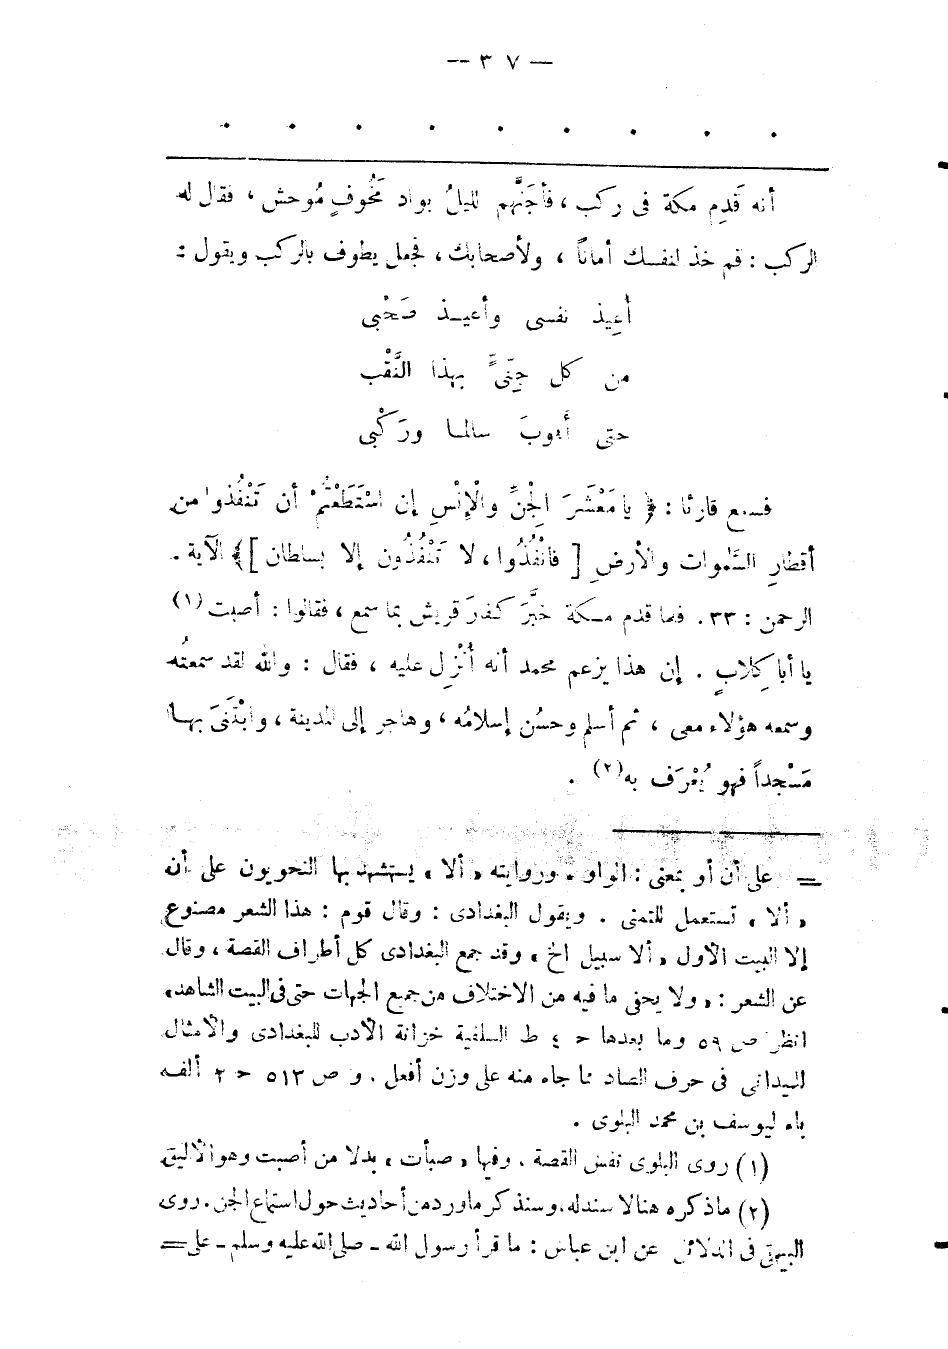 — ٣٧ —
. . . . . . . . .
أنه قَدِم مكة فى ركب ، فأجَنَّهم الليلُ بواد مَخُوفٍ مُوحش ، فقال له
الركب : قم خذ لنفسك أماناً ، ولأصحابك ، فجعل يطوف بالركب ويقول :
أُعِيذ نفسى وأعيـذ صَحْبى
من كل جِنّىٍّ بهذا النَّقْب
حتى أَءوبَ سالمـا ورَكْبى
فسمع قارئا : ﴿ يا مَعْشَرَ الِجْنِّ والْإِنْسِ إن اسْتَطَعْتُمْ أن تَنْفُذوا من
أقطارِ السَّمٰوات والأرضِ [ فانْفُذُوا ، لا تَنْفُذُون إلا بسلطان ]﴾ الآية .
الرحمن : ٣٣ . فلما قدم مـكة خبَّرَ كفارَ قريش بما سمع ، فقالوا : أصبت (١)
يا أبا كِلابٍ . إن هذا يزعم محمد أنه أُنْزِل عليه ، فقال : والله لقد سمعتُه
وسمعه هؤلاء معى ، ثم أسلم وحسُن إسلامُه ، وهاجر إلى المدينة ، وابْتَنَى بهـا
مَسْجداً فهو يُعْرَف به (٢) .
= على أن أو بمعنى : الواو . وروايته « ألا » يستشهد بها النحويون على أن
« ألا » تستعمل للتمنى . ويقول البغدادى : وقال قوم : هذا الشعر مصنوع
إلا البيت الأول « ألا سبيل الخ » وقد جمع البغدادى كل أطراف القصة ، وقال
عن الشعر : « ولا يخفى ما فيه من الاختلاف من جميع الجهات حتى فى البيت الشاهد »
انظر ص ٥٩ وما بعدها حـ ٤ ط السلفية خزانة الأدب للبغدادى والأمثال
للميدانى فى حرف الصاد مما جاء منه على وزن أفعل . و ص ٥١٣ حـ ٢ ألف
باء ليوسف بن محمد البلوى .
(١) روى البلوى نفس القصة . وفيها « صبأت » بدلا من أصبت وهو الأليق
(٢) ما ذكره هنا لا سند له ، وسنذكر ما ورد من أحاديث حول استماع الجن . روى
البيهقى فى الدلائل عن ابن عباس : ما قرأ رسول الله ــ صلى الله عليه وسلم ــ على =